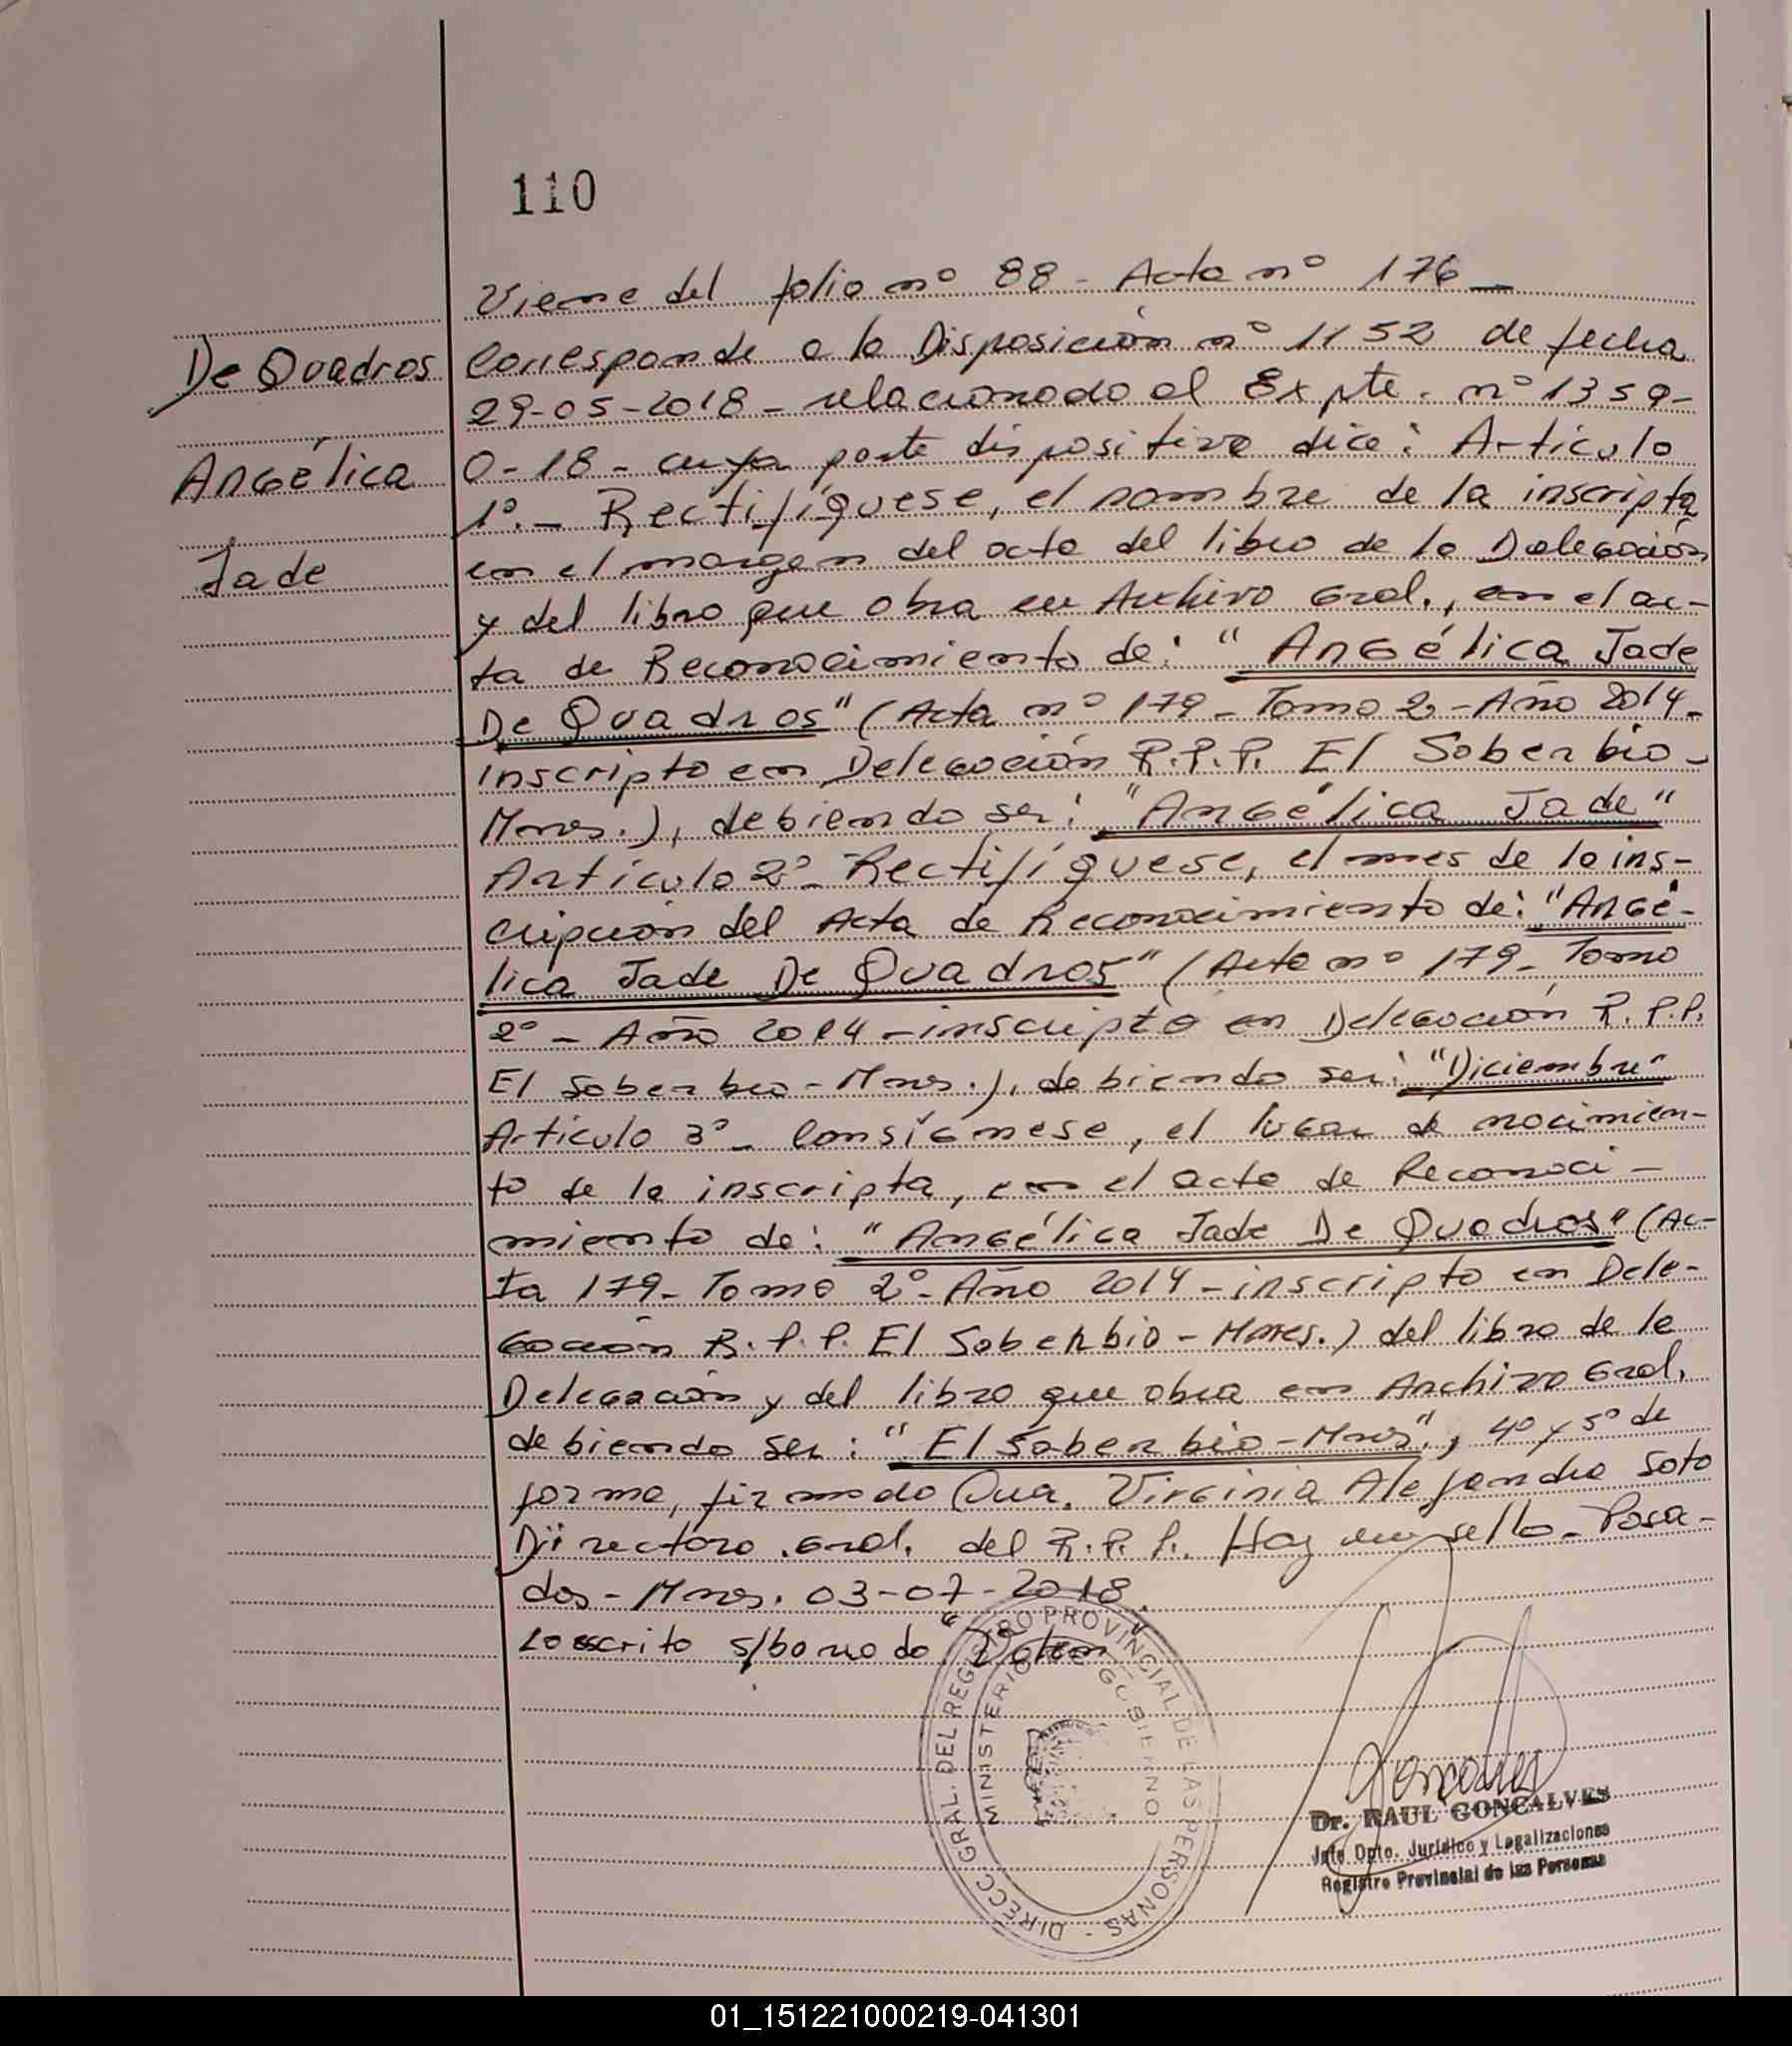 110
Viene del folio nº 88 - Acta nº 176 -
De Quadros
Angélica
Jade
Corresponde a la Disposición nº 1152 de fecha
29-05-2018 - relacionado al Expte. nº 1359-
0-18 - cuya parte dispositiva dice: Artículo
1º.- Rectifíquese, el nombre de la inscripta
en el margen del acta del libro de la Delegación
y del libro que obra en Archivo Gral., en el ac-
ta de Reconocimiento de: "Angélica Jade
De Quadros" (Acta nº 179 - Tomo 2 - Año 2014 -
inscripto en Delegación R.P.P. El Soberbio -
Mnes.), debiendo ser: "Angélica Jade"
Artículo 2º - Rectifíquese, el mes de la ins-
cripción del Acta de Reconocimiento de: "Angé-
lica Jade De Quadros" (Acta nº 179 - Tomo
2º - Año 2014 - inscripto en Delegación R.P.P.
El Soberbio - Mnes.), debiendo ser: "Diciembre"
Artículo 3º - Consígnese, el lugar de nacimien-
to de la inscripta, en el acta de Reconoci-
miento de: "Angélica Jade De Quadros" (Ac-
ta 179 - Tomo 2º - Año 2014 - inscripto en Dele-
gación R.P.P. El Soberbio - Mnes.) del libro de la
Delegación y del libro que obra en Archivo Gral.
debiendo ser: "El Soberbio - Mnes.", 4º y 5º de
forma, firmado Dra. Virginia Alejandra Soto
Directora Gral. del R.P.P. Hay un sello - Posa-
das - Mnes. 03-07-2018.
Lo escrito s/borrado
DIRECC GRAL. DEL REGISTRO PROVINCIAL DE LAS PERSONAS -
MINISTERIO DE GOBIERNO
Dr. RAUL GONCALVES
Jefe Dpto. Jurídico y Legalizaciones
Registro Provincial de las Personas
01_151221000219-041301